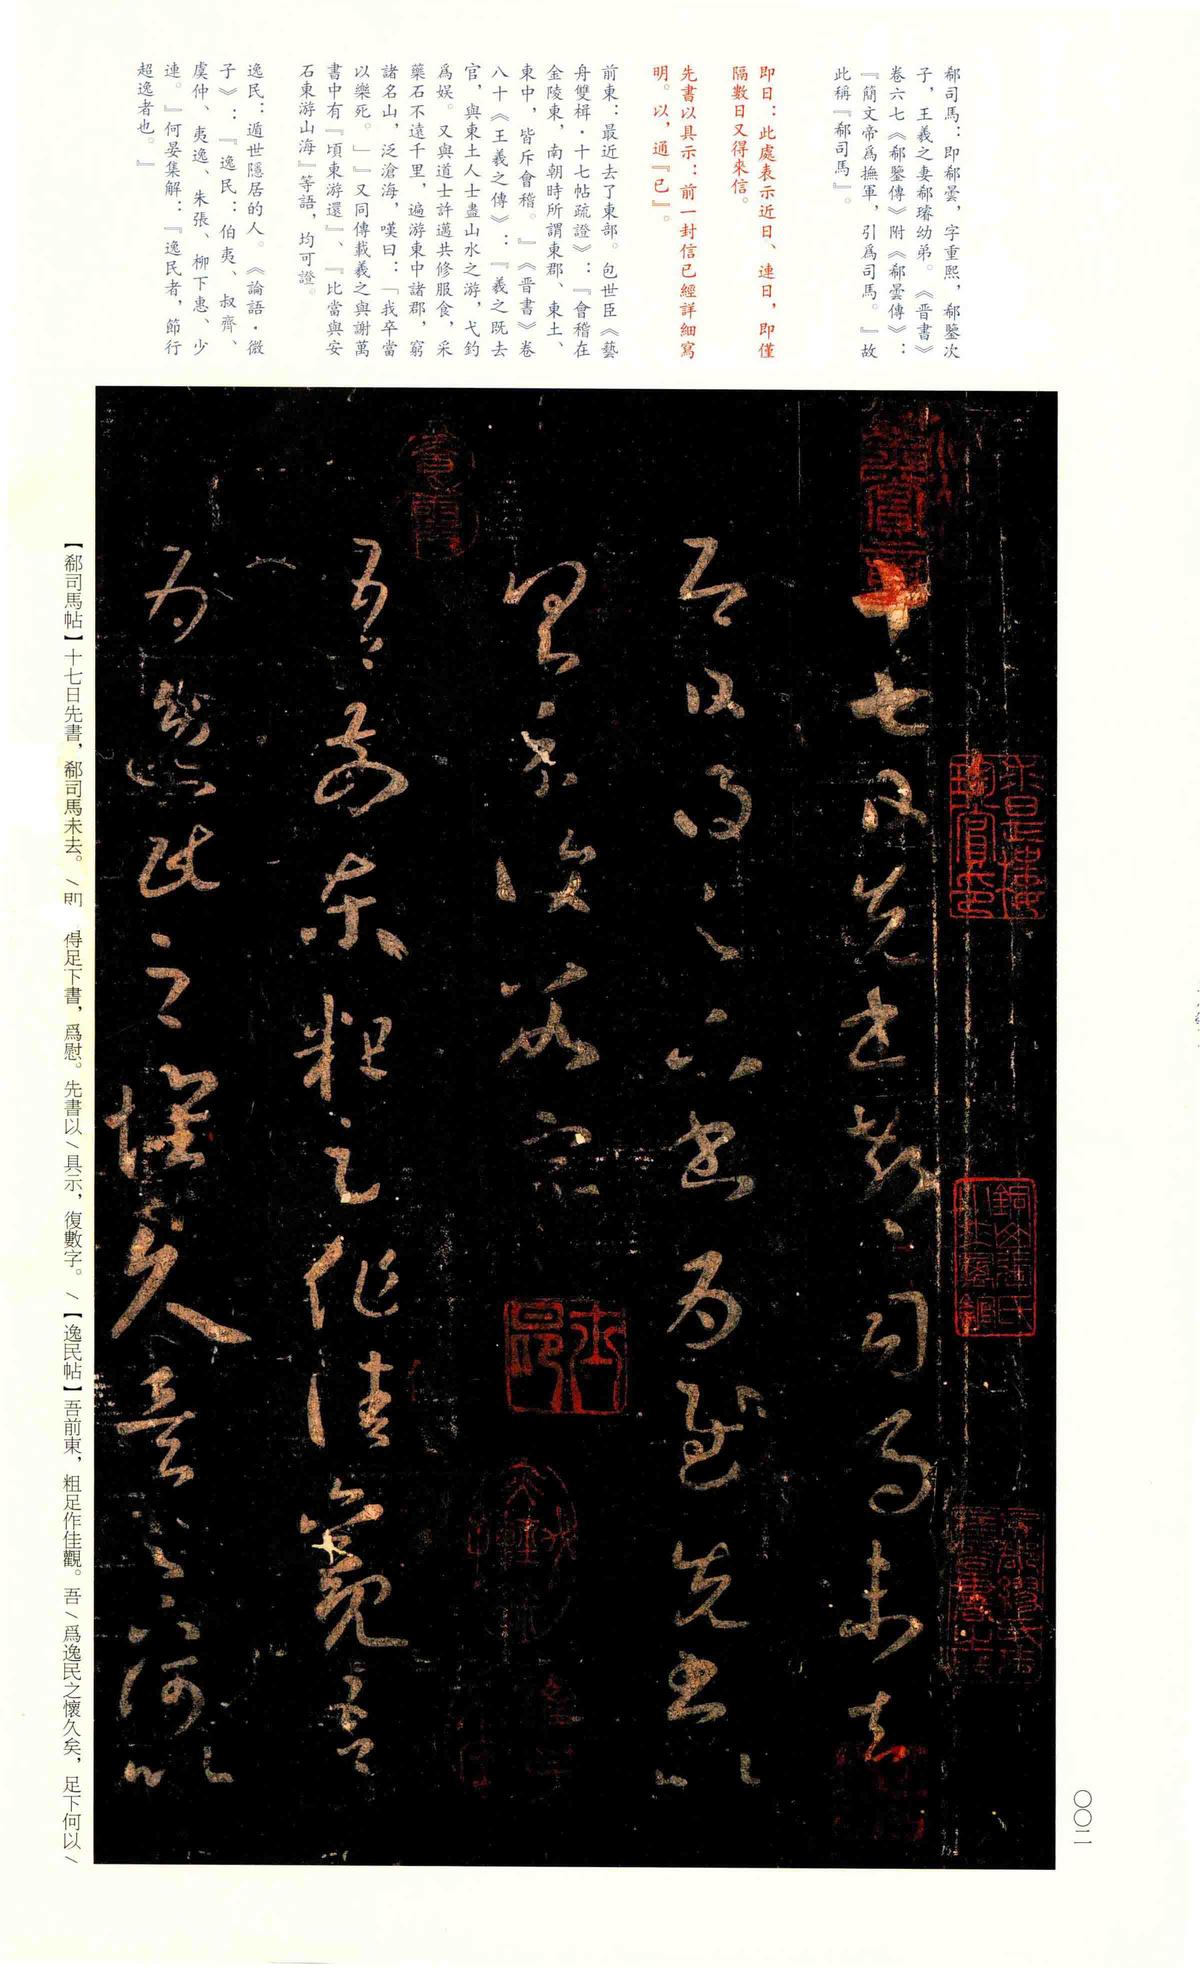 郗司馬：即郗曇，字重熙，郗鑒次
子，王羲之妻郗璿幼弟。《晋書》
卷六七《郗鑒傳》附《郗曇傳》：
『簡文帝爲撫軍，引爲司馬。』故
此稱『郗司馬』。
即日：此處表示近日、連日，即僅
隔數日又得來信。
先書以具示：前一封信已經詳細寫
明。以，通『已』。
前東：最近去了東部。包世臣《藝
舟雙楫·十七帖疏證》：『會稽在
金陵東，南朝時所謂東郡、東土、
東中，皆斥會稽。』《晋書》卷
八十《王羲之傳》：『羲之既去
官，與東土人士盡山水之游，弋釣
爲娱。又與道士許邁共修服食，采
藥石不遠千里，遍游東中諸郡，窮
諸名山，泛滄海，嘆曰：「我卒當
以樂死。」』又同傳載羲之與謝萬
書中有『頃東游還』、『比當與安
石東游山海』等語，均可證。
逸民：遁世隱居的人。《論語·微
子》：『逸民：伯夷、叔齊、
虞仲、夷逸、朱張、柳下惠、少
連。』何晏集解：『逸民者，節行
超逸者也。』
十七日先書郗司馬未去
即日得足下書爲慰先書以
具示復數字
吾前東粗足作佳觀吾
爲逸民之懷久矣足下何以
【郗司馬帖】十七日先書，郗司馬未去。\即 得足下書，爲慰。先書以\具示，復數字。\【逸民帖】吾前東，粗足作佳觀。吾\爲逸民之懷久矣，足下何以\
〇〇二